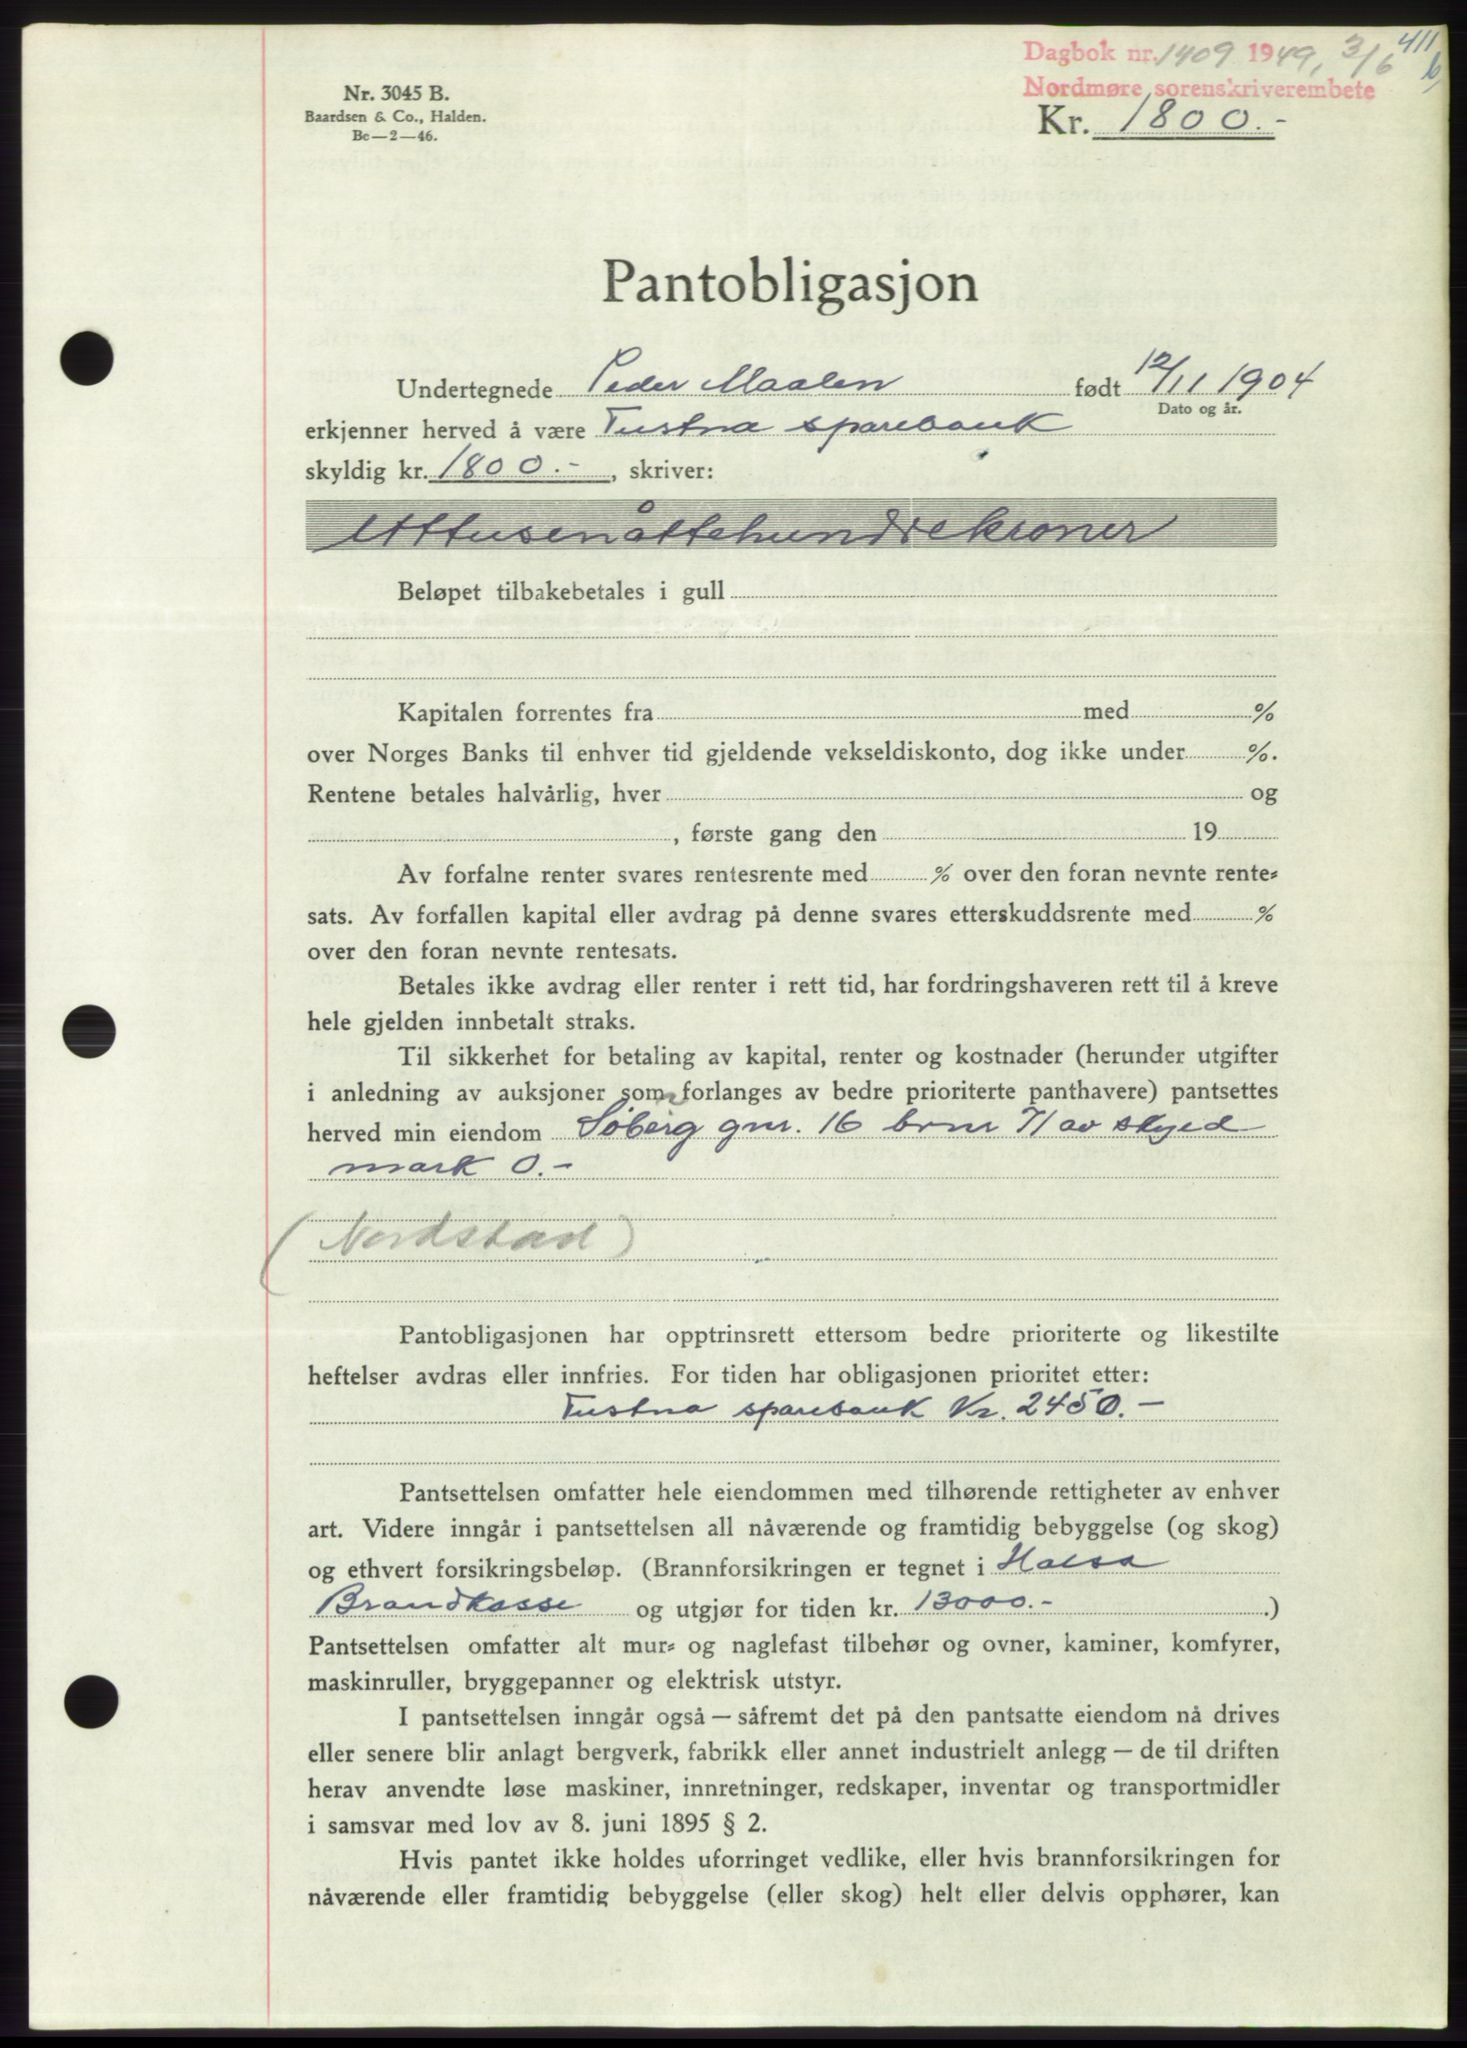 411 b
Dagbok nr. 1409 1949, 3/6
Nordmøre sorenskriverembete
Nr. 3045 B.
Baardsen & Co., Halden.
Bc—2—46.
Kr. 1800.-
Pantobligasjon
Undertegnede Peder Maalen født 12/11 1904
Dato og år.
erkjenner herved å være Tustna sparebank
skyldig kr. 1800.-, skriver:
Attusenåttehundrekroner
Beløpet tilbakebetales i gull
Kapitalen forrentes fra med %
over Norges Banks til enhver tid gjeldende vekseldiskonto, dog ikke under %.
Rentene betales halvårlig, hver og
, første gang den 19
Av forfalne renter svares rentesrente med % over den foran nevnte rente-
sats. Av forfallen kapital eller avdrag på denne svares etterskuddsrente med %
over den foran nevnte rentesats.
Betales ikke avdrag eller renter i rett tid, har fordringshaveren rett til å kreve
hele gjelden innbetalt straks.
Til sikkerhet for betaling av kapital, renter og kostnader (herunder utgifter
i anledning av auksjoner som forlanges av bedre prioriterte panthavere) pantsettes
herved min eiendom Søberg gnr. 16 brnr 71 av skyld
mark 0.-
(Nordstad)
Pantobligasjonen har opptrinsrett ettersom bedre prioriterte og likestilte
heftelser avdras eller innfries. For tiden har obligasjonen prioritet etter:
Tustna sparebank Kr. 2450.-
Pantsettelsen omfatter hele eiendommen med tilhørende rettigheter av enhver
art. Videre inngår i pantsettelsen all nåværende og framtidig bebyggelse (og skog)
og ethvert forsikringsbeløp. (Brannforsikringen er tegnet i Halsa
Brandkasse og utgjør for tiden kr. 13000.- .)
Pantsettelsen omfatter alt mur- og naglefast tilbehør og ovner, kaminer, komfyrer,
maskinruller, bryggepanner og elektrisk utstyr.
I pantsettelsen inngår også — såfremt det på den pantsatte eiendom nå drives
eller senere blir anlagt bergverk, fabrikk eller annet industrielt anlegg — de til driften
herav anvendte løse maskiner, innretninger, redskaper, inventar og transportmidler
i samsvar med lov av 8. juni 1895 § 2.
Hvis pantet ikke holdes uforringet vedlike, eller hvis brannforsikringen for
nåværende eller framtidig bebyggelse (eller skog) helt eller delvis opphører, kan